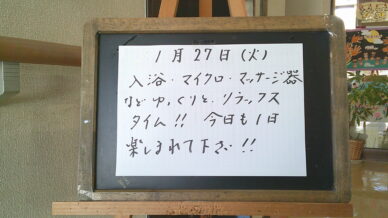 1月27日(火)
入浴・マイクロ・マッサージ器
などゆっくりと、リラックス
タイム!! 今日も1日
楽しまれて下さい!!